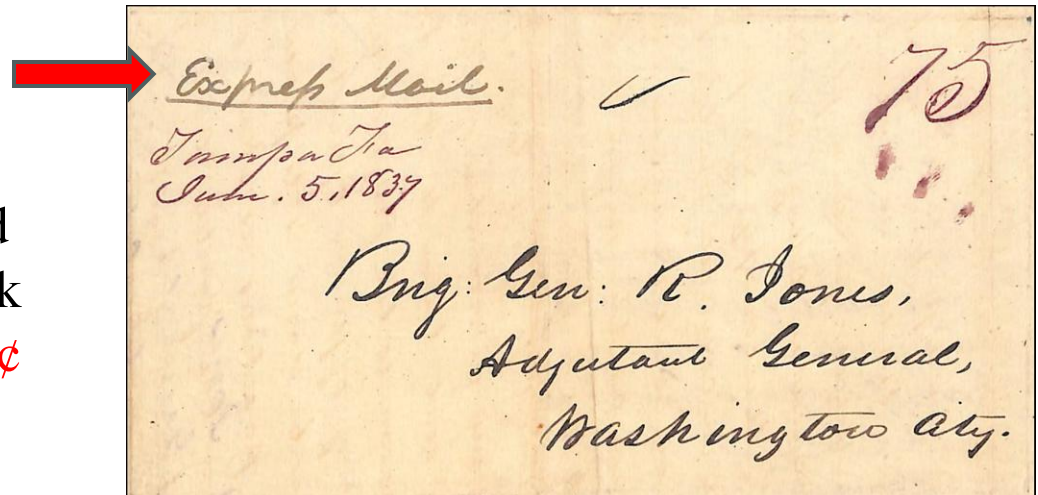 Express Mail.
75
Tampa Fa
Jun. 5, 1837
Brig: Gen: R. Jones,
Adjutant General,
Washington City.
d
k
¢